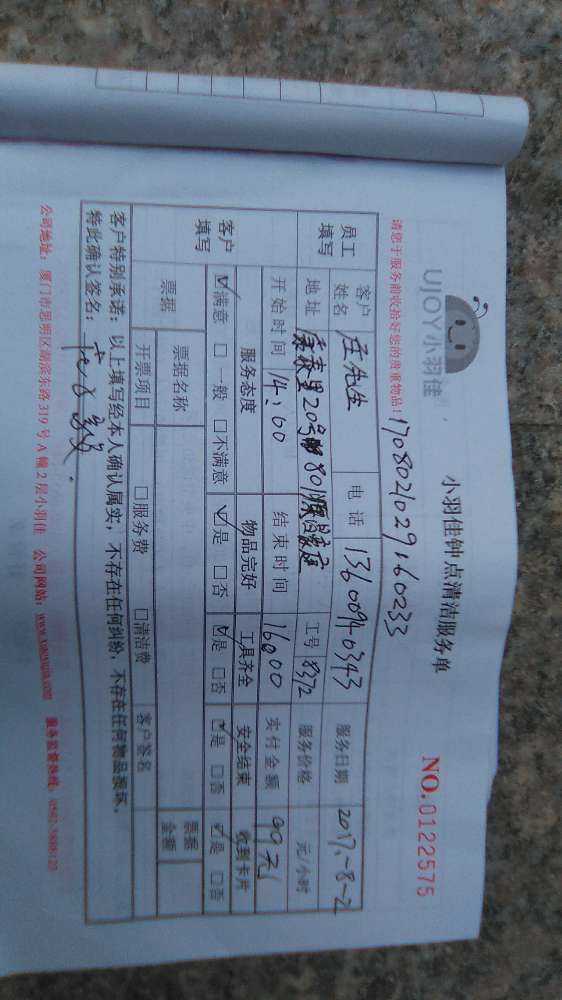 UJOY小羽佳
小羽佳钟点清洁服务单
NO.0122575
请您于服务前收拾好您的贵重物品！
1708021029160233
员工填写 客户姓名 庄先生 电话 13600940343 服务日期 2017.-8-2
地址 20号 801 工号 8372 服务价格 元/小时
开始时间 14:00 结束时间 16:00 实付金额 99元
客户填写 服务态度 物品完好 工具齐全 安全结束 收到卡片
☑满意 □一般 □不满意 ☑是 □否 ☑是 □否 ☑是 □否 ☑是 □否
票据 票据名称 票据金额
开票项目 □服务费 □清洁费 客户签名
客户特别承诺：以上填写经本人确认属实，不存在任何纠纷，不存在任何物品损坏。
特此确认签名：
公司地址：厦门市思明区湖滨东路319号A幢2层小羽佳 公司网站：www.xiaoyujia.com 服务监督热线：